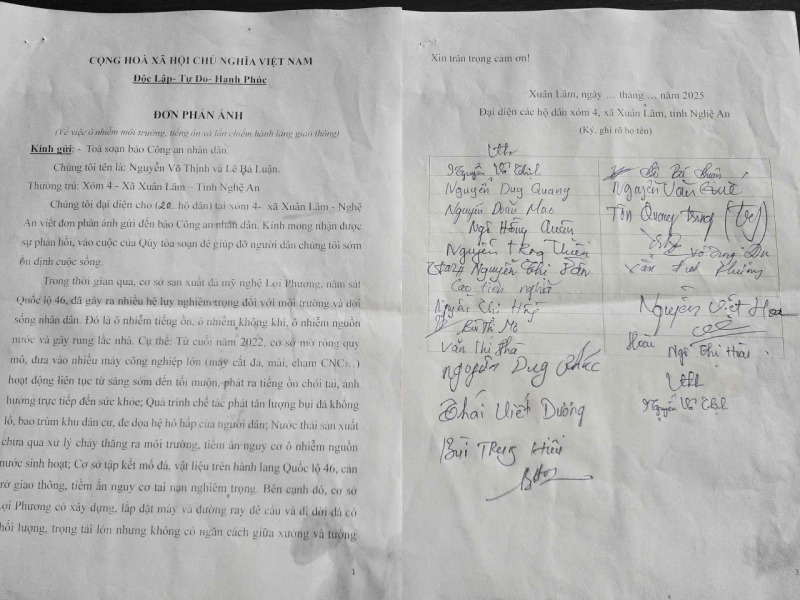 CỘNG HOÀ XÃ HỘI CHỦ NGHĨA VIỆT NAM
Độc Lập- Tự Do- Hạnh Phúc
ĐƠN PHẢN ÁNH
(Về việc ô nhiễm môi trường, tiếng ồn và lấn chiếm hành lang giao thông)
Kính gửi: - Toà soạn báo Công an nhân dân.
Chúng tôi tên là: Nguyễn Võ Thịnh và Lê Bá Luận.
Thường trú: Xóm 4 - Xã Xuân Lâm – Tỉnh Nghệ An
Chúng tôi đại diện cho (20 hộ dân) tại xóm 4- xã Xuân Lâm - Nghệ
An viết đơn phản ánh gửi đến báo Công an nhân dân. Kính mong nhận được
sự phản hồi, vào cuộc của Qúy tòa soạn để giúp đỡ người dân chúng tôi sớm
ổn định cuộc sống.
Trong thời gian qua, cơ sở sản xuất đá mỹ nghệ Lợi Phương, nằm sát
Quốc lộ 46, đã gây ra nhiều hệ lụy nghiêm trọng đối với môi trường và đời
sống nhân dân. Đó là ô nhiễm tiếng ồn, ô nhiễm không khí, ô nhiễm nguồn
nước và gây rung lắc nhà. Cụ thể: Từ cuối năm 2022, cơ sở mở rộng quy
mô, đưa vào nhiều máy công nghiệp lớn (máy cắt đá, mài, chạm CNC...)
hoạt động liên tục từ sáng sớm đến tối muộn, phát ra tiếng ồn chói tai, ảnh
hưởng trực tiếp đến sức khỏe; Quá trình chế tác phát tán lượng bụi đá khổng
lồ, bao trùm khu dân cư, đe dọa hệ hô hấp của người dân; Nước thải sản xuất
chưa qua xử lý chảy thẳng ra môi trường, tiềm ẩn nguy cơ ô nhiễm nguồn
nước sinh hoạt; Cơ sở tập kết mồ đá, vật liệu trên hành lang Quốc lộ 46, cản
trở giao thông, tiềm ẩn nguy cơ tai nạn nghiêm trọng. Bên cạnh đó, cơ sở
Lợi Phương có xây dựng, lắp đặt máy và đường ray để cẩu và di dời đá có
khối lượng, trọng tải lớn nhưng không có ngăn cách giữa xưởng và tường
1
Xin trân trọng cảm ơn!
Xuân Lâm, ngày ... tháng ... năm 2025
Đại diện các hộ dân xóm 4, xã Xuân Lâm, tỉnh Nghệ An
(Ký, ghi rõ họ tên)
Nguyễn Võ Thịnh
Lê Bá Luận
Nguyễn Duy Quang
Nguyễn Văn
Nguyễn Doãn Mão
Tôn Quang Trung
Ngô Hồng Quân
Nguyễn Trọng Thiện
Võ
Nguyễn Thị
Văn Đình Phương
Cao tiến nghĩa
Nguyễn Thị Hồng
Nguyễn Viết Hoa
Bùi Thị Mơ
Văn Thị Phà
Ngô Thị Hoài
Nguyễn Duy Phúc
Nguyễn Võ Thịnh
Thái Viết Dương
Bùi Trọng Hiếu
3